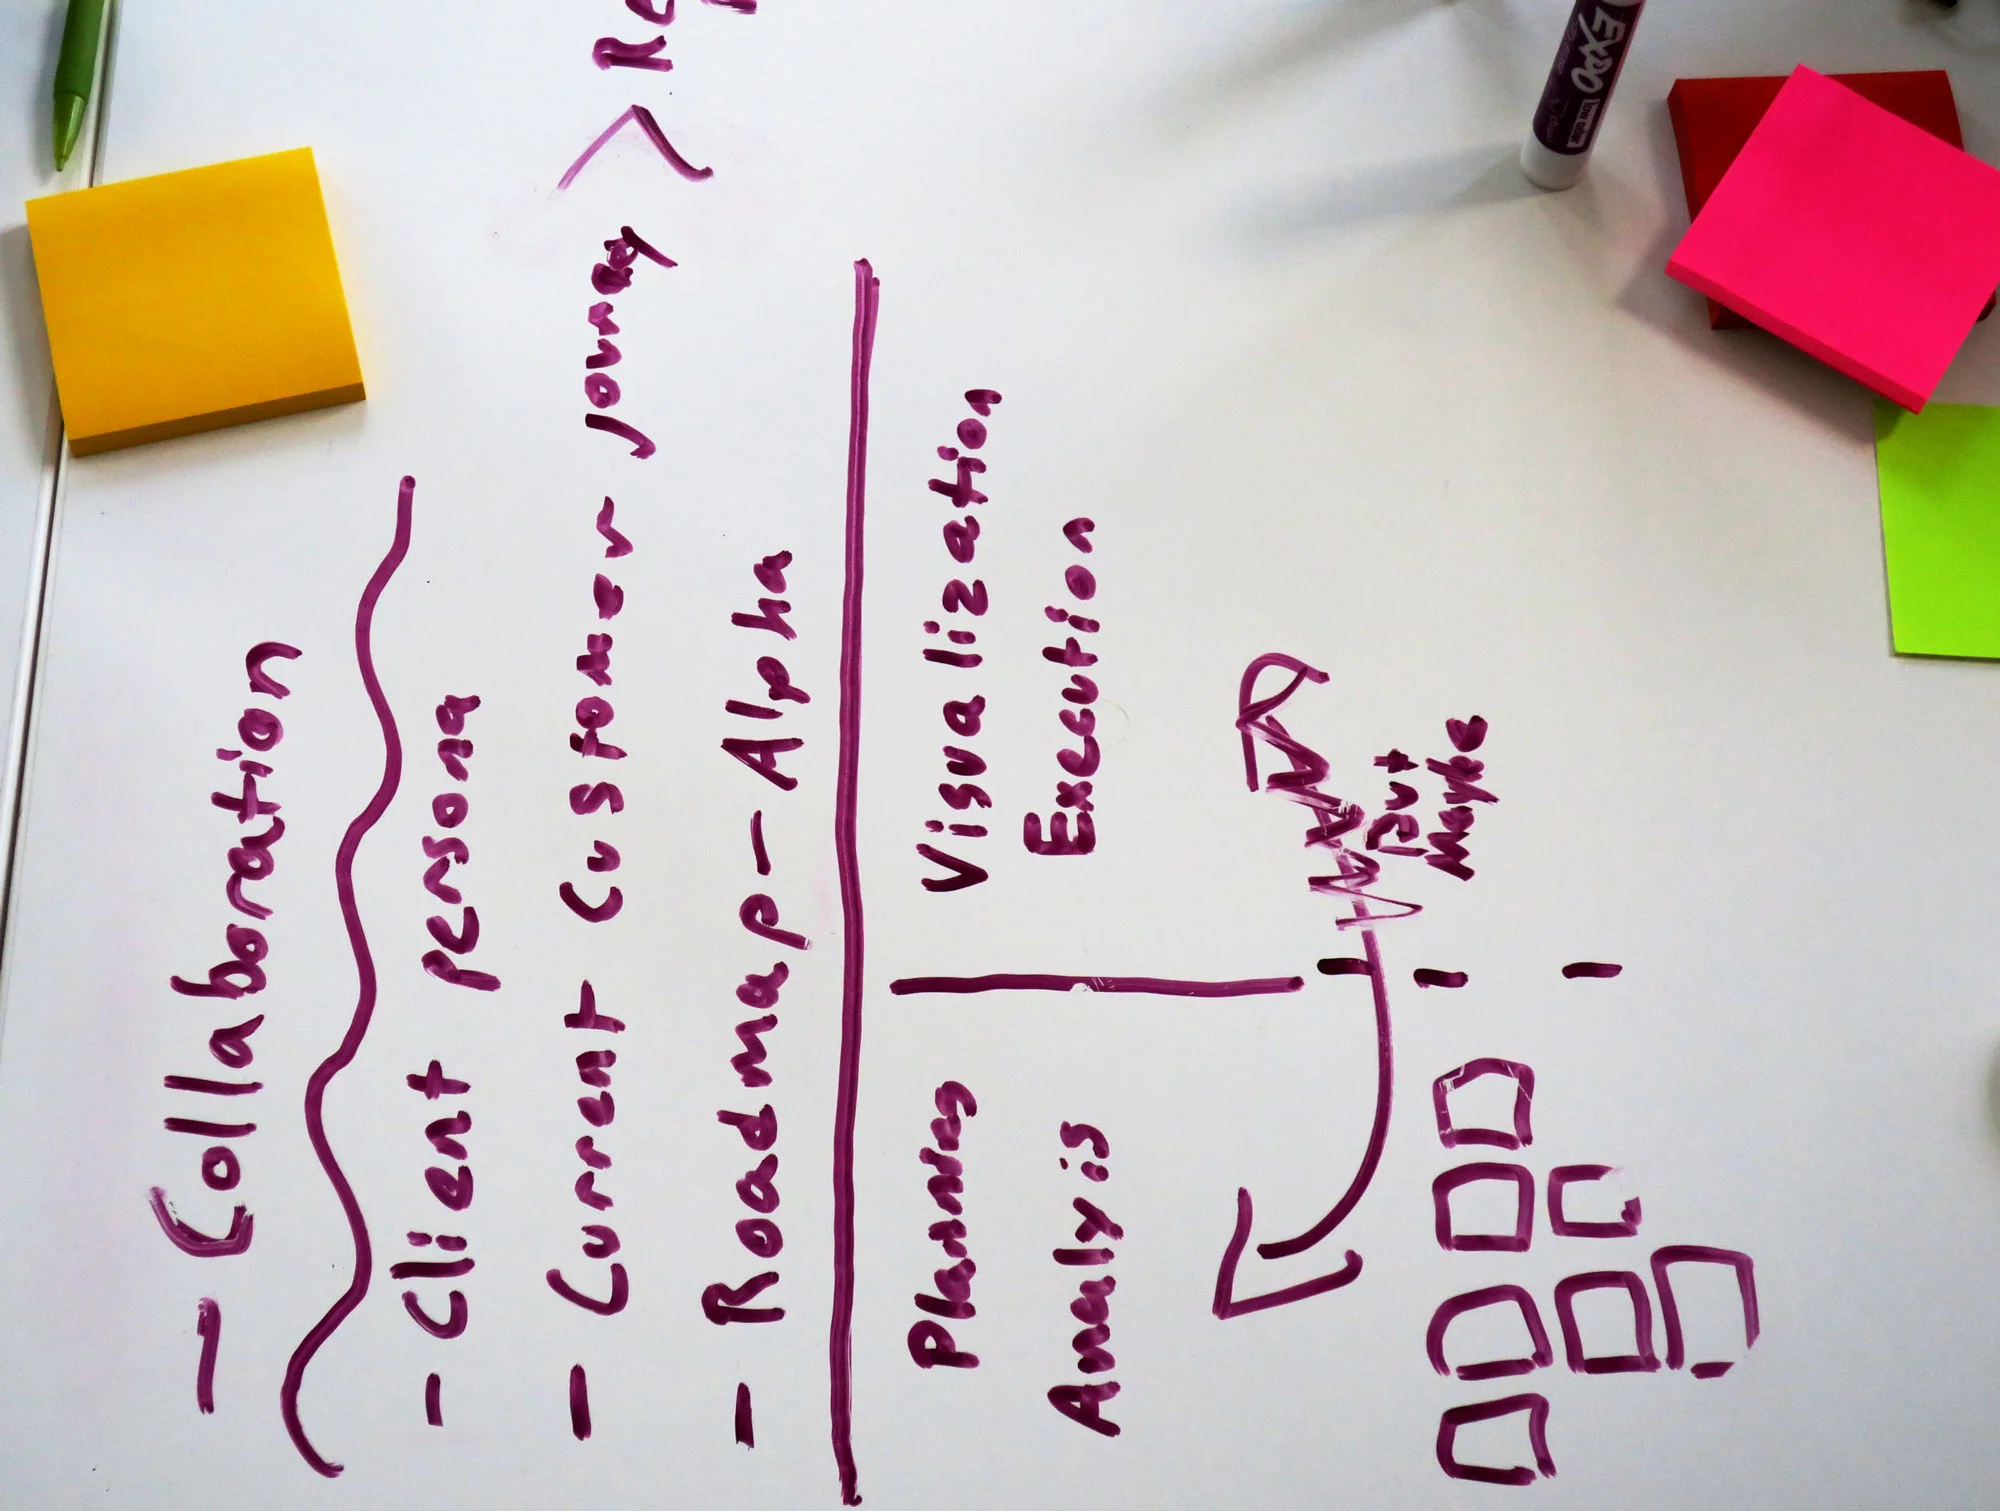 - Collaboration
- Client persona
- Current Customer journay > Re
- Roadmap - Alpha
Planning
Visualization
Analyis
Execution
but
Maybe
EXPO
low odor